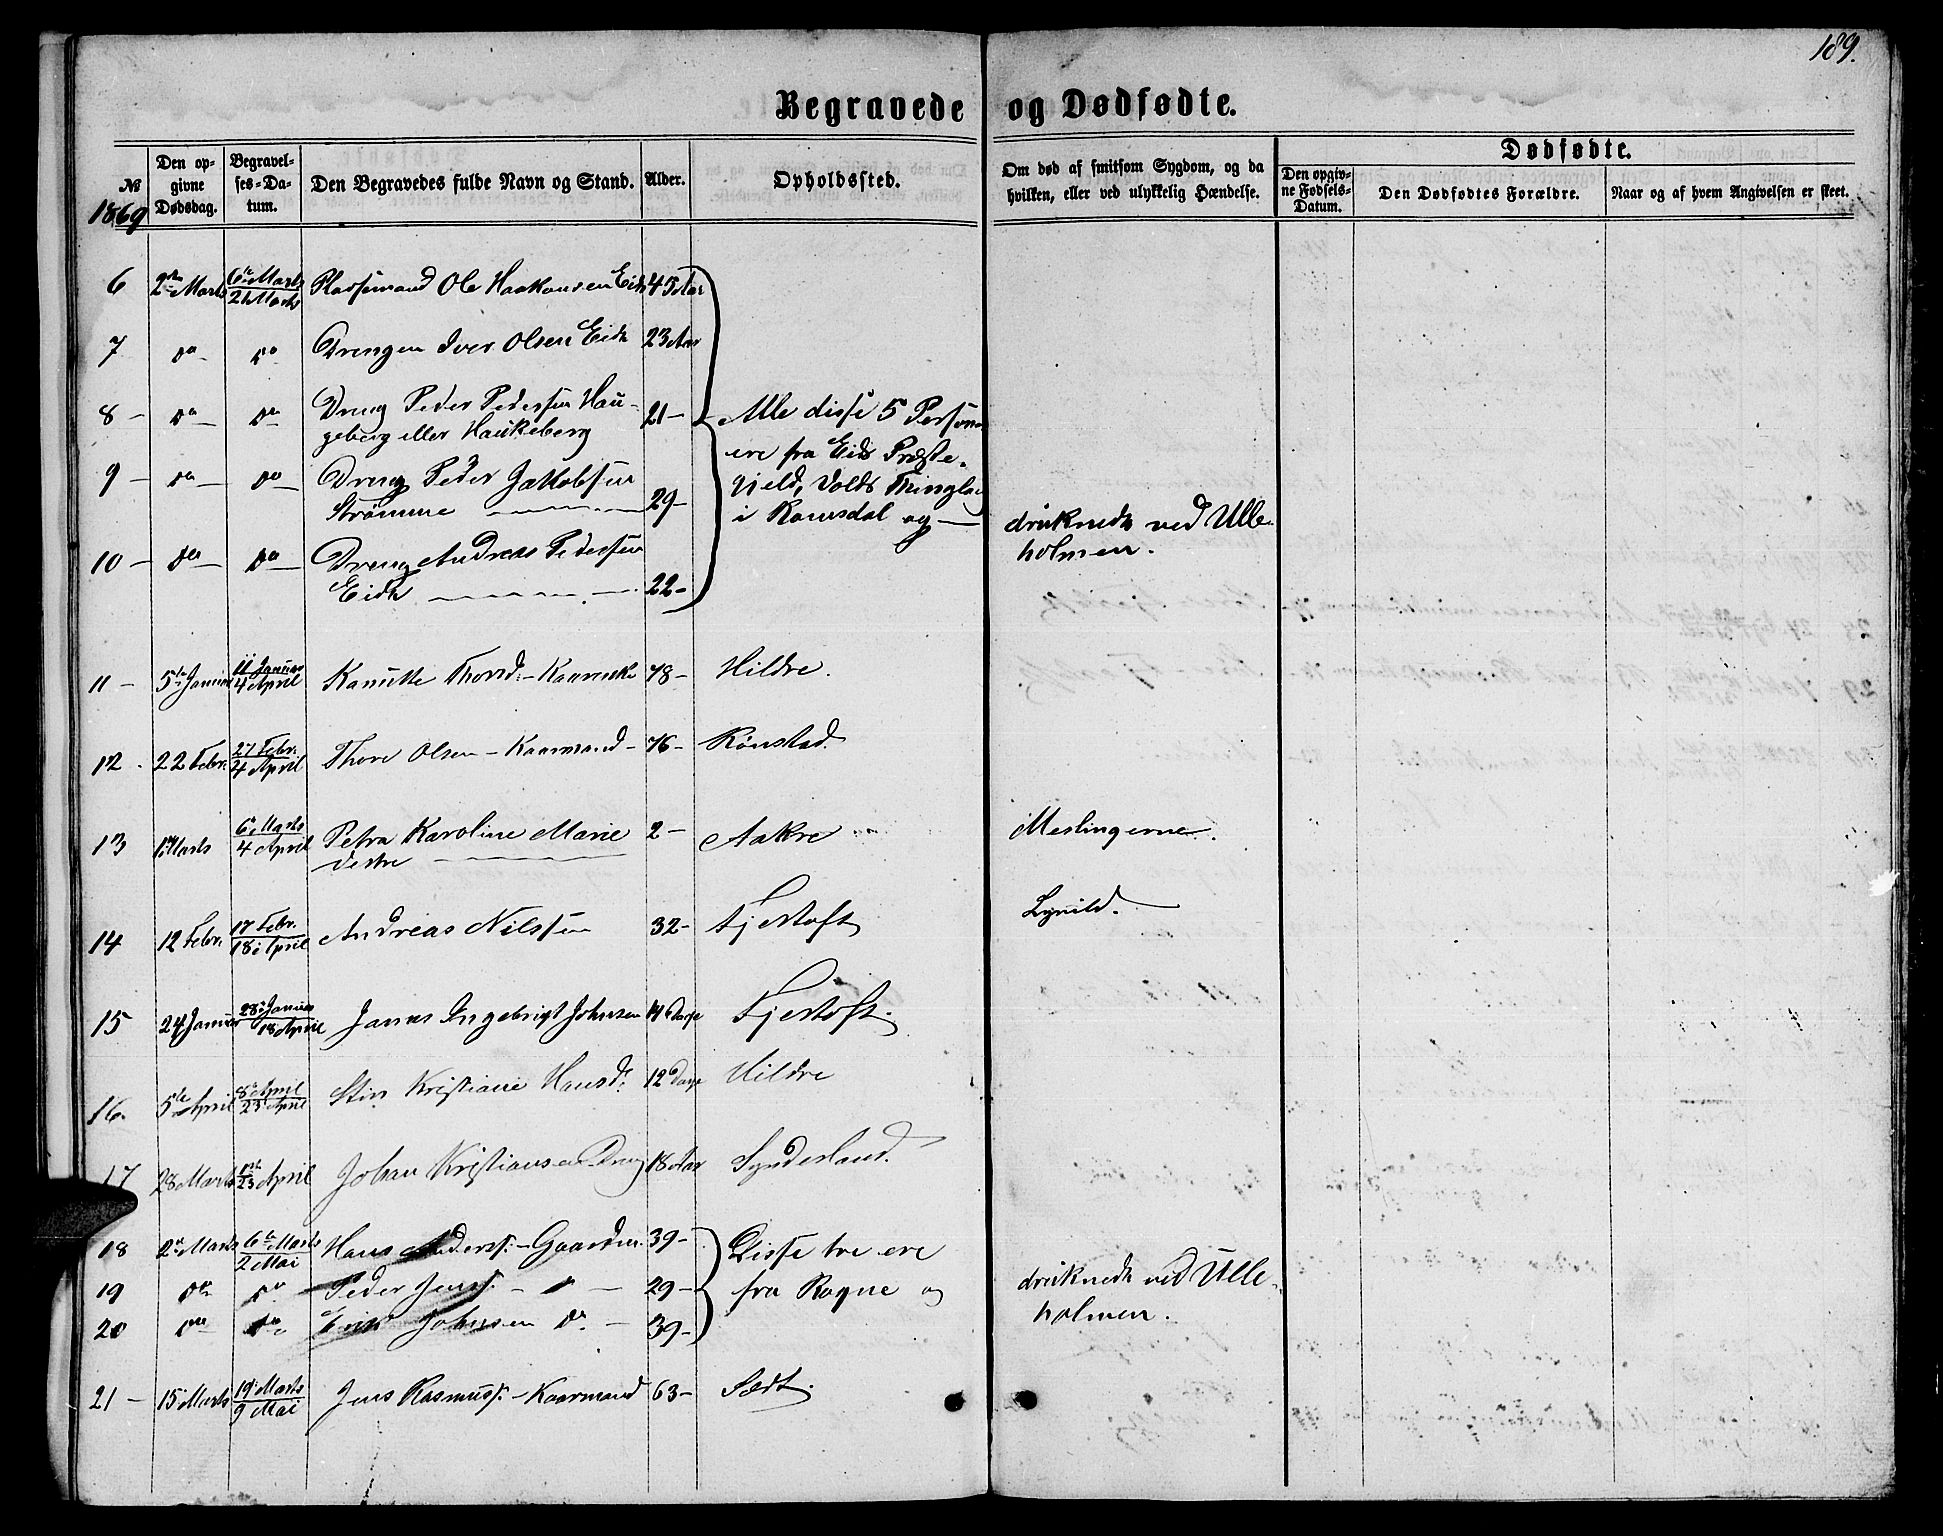 189.
Begravede og Dødfødte.
№
1869
Den opgivne Dødsdag.
Begravelses-Datum.
Den Begravedes fulde Navn og Stand.
Alder.
Opholdssted.
Om død af smitsom Sygdom, og da hvilken, eller ved ulykkelig Hændelse.
Dødfødte.
Den opgivne Fødsels-Datum.
Den Dødfødtes Forældre.
Naar og af hvem Angivelsen er skeet.
6 2den Marts 6te Marts / 21 Marts Plassmand Ole Haakonsen Eide 45 Aar
7 do do Drengen Iver Olsen Eide 23 Aar
8 - do do Dreng Peder Pedersen Hau-
geberg eller Haukeberg 21 -
Alle disse 5 Personer
ere fra Eids Præste-
gjeld, Volds Thinglag
i Romsdal og
9 - do do Dreng Peder Jakobsen
Strømme 29 -
druknede ved Ulle-
holmen.
10 - do do Dreng Andreas Pedersen
Eide 22 -
11 - 5te Januar 11 Januar / 4 April Kanutte Thorsd: - Kaarenke 78 - Hildre.
12 - 22 Febr. 27 Febr. / 4 April Thore Olsen - Kaarmand - 76 - Rønstad.
13 1 Marts 6 Marts / 4 April Petra Karoline Marie
destre 2 - Aakre Meslingerne.
14 12 Febr. 17 Febr. / 18 April Andreas Nilssen 32 - Fjertoft Lynild.
15 24 Januar 28 Januar / 18 April Janus Ingebrigt Johnsen 14 Dage Fjertoft.
16. 5te April 8 April / 25 April Stin Kristiane Hansdr. 12 Dage Hildre
17 28 Marts 1ste / 25 April Johan Kristiansen Dreng 18 Aar Synderland.
18 2den Marts 6te Marts / 2 Mai Hans Anderss: - Gaardm. 39 -
Disse tre ere
fra Rogne og
druknede ved Ulle-
holmen.
19 do do Peder Jens. - " - 29 -
20 do do Erik Johnsen do - 39 -
21 - 15 Marts 19 Marts / 9 Mai Jens Rasmuss. - Kaarmand 63 - Sædt.